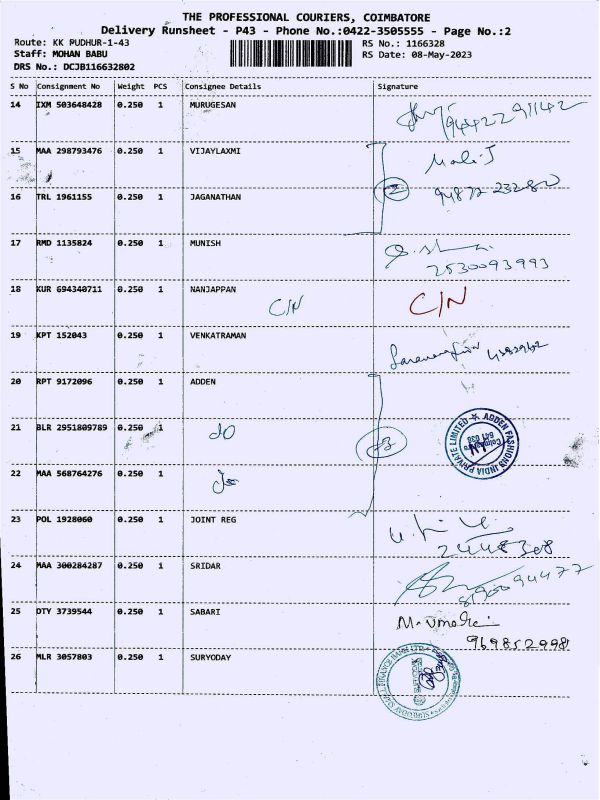 THE PROFESSIONAL COURIERS, COIMBATORE
Delivery Runsheet - P43 - Phone No.:0422-3505555 - Page No.:2
Route: KK PUDHUR-1-43 RS No.: 1166328
Staff: MOHAN BABU RS Date: 08-May-2023
DRS No.: DCJB116632802
S No Consignment No Weight PCS Consignee Details Signature
14 IXM 503648428 0.250 1 MURUGESAN
15 MAA 298793476 0.250 1 VIJAYLAXMI
16 TRL 1961155 0.250 1 JAGANATHAN
2
17 RMD 1135824 0.250 1 MUNISH
2530093993
18 KUR 694340711 0.250 1 NANJAPPAN
C/N C/N
19 KPT 152043 0.250 1 VENKATRAMAN
20 RPT 9172096 0.250 1 ADDEN
21 BLR 2951809789 0.250 1 do
ADDEN FASHIONS INDIA PRIVATE LIMITED
Coimbatore
641 038
22 MAA 568764276 0.250 1
23 POL 1928060 0.250 1 JOINT REG
24 MAA 300284287 0.250 1 SRIDAR
8190094477
25 DTY 3739544 0.250 1 SABARI
969852998
26 MLR 3057803 0.250 1 SURYODAY